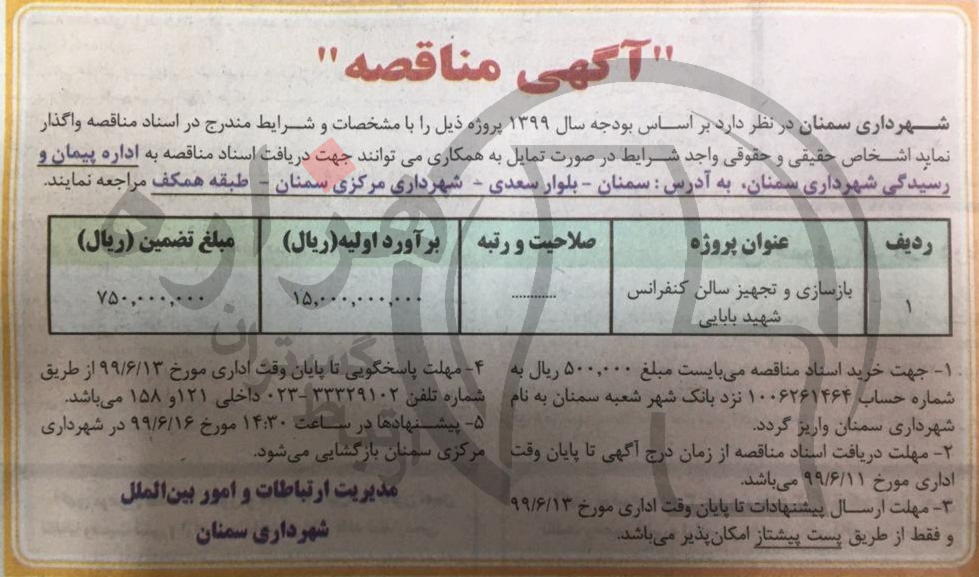 "آگهی مناقصه"
شهرداری سمنان در نظر دارد بر اساس بودجه سال ۱۳۹۹ پروژه ذیل را با مشخصات و شرایط مندرج در اسناد مناقصه واگذار
نماید اشخاص حقیقی و حقوقی واجد شرایط در صورت تمایل به همکاری می توانند جهت دریافت اسناد مناقصه به اداره پیمان و
رسیدگی شهرداری سمنان، به آدرس : سمنان - بلوار سعدی - شهرداری مرکزی سمنان - طبقه همکف مراجعه نمایند.
ردیف عنوان پروژه صلاحیت و رتبه برآورد اولیه(ریال) مبلغ تضمین (ریال)
۱ بازسازی و تجهیز سالن کنفرانس شهید بابایی ............ ۱۵,۰۰۰,۰۰۰,۰۰۰ ۷۵۰,۰۰۰,۰۰۰
۱- جهت خرید اسناد مناقصه می‌بایست مبلغ ۵۰۰,۰۰۰ ریال به
شماره حساب ۱۰۰۶۲۶۱۴۶۴ نزد بانک شهر شعبه سمنان به نام
شهرداری سمنان واریز گردد.
۲- مهلت دریافت اسناد مناقصه از زمان درج آگهی تا پایان وقت
اداری مورخ ۹۹/۶/۱۱ می‌باشد.
۳- مهلت ارسال پیشنهادات تا پایان وقت اداری مورخ ۹۹/۶/۱۳
و فقط از طریق پست پیشتاز امکان‌پذیر می‌باشد.
۴- مهلت پاسخگویی تا پایان وقت اداری مورخ ۹۹/۶/۱۳ از طریق
شماره تلفن ۳۳۳۲۹۱۰۲ -۰۲۳ داخلی ۱۲۱و ۱۵۸ می‌باشد.
۵- پیشنهادها در ساعت ۱۴:۳۰ مورخ ۹۹/۶/۱۶ در شهرداری
مرکزی سمنان بازگشایی می‌شود.
مدیریت ارتباطات و امور بین‌الملل
شهرداری سمنان
هزاره